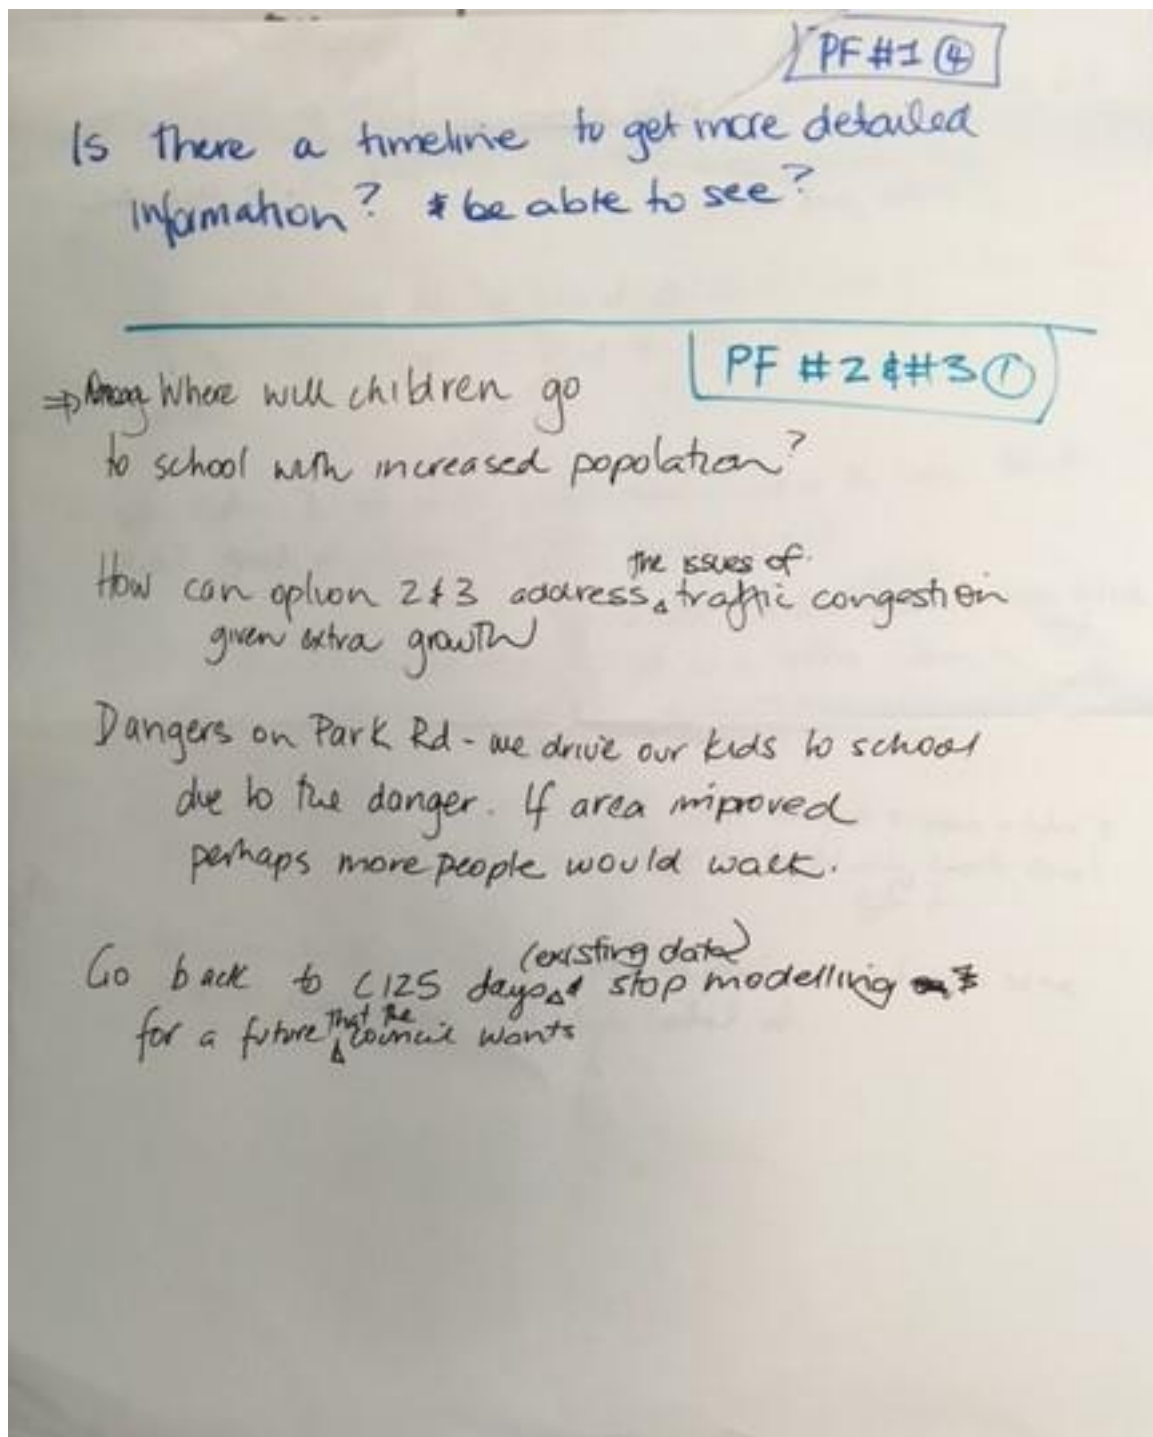 PF #1 ④
Is there a timeline to get more detailed
information? & be able to see?
PF #2 & #3 ①
⇒ Where will children go
to school with increased popolation?
the issues of
How can option 2 & 3 address traffic congestion
given extra growth
Dangers on Park Rd - we drive our kids to school
due to the danger. If area improved
perhaps more people would walk.
(existing data)
Go back to C125 days & stop modelling
that the
for a future council wants